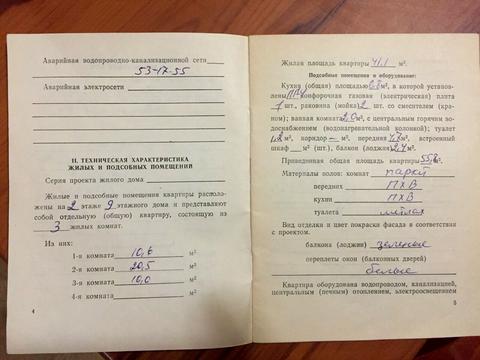 Аварийная водопроводно-канализационной сети
53-17-55
Аварийная электросети
II. ТЕХНИЧЕСКАЯ ХАРАКТЕРИСТИКА
ЖИЛЫХ И ПОДСОБНЫХ ПОМЕЩЕНИЙ
Серия проекта жилого дома
Жилые и подсобные помещения квартиры располо-
жены на 2 этаже 9 этажного дома и представляют
собой отдельную (общую) квартиру, состоящую из
3 жилых комнат.
Из них:
1-я комната 10,6 м²
2-я комната 20,5 м²
3-я комната 10,0 м²
4-я комната м²
4
Жилая площадь квартиры 41,1 м².
Подсобные помещения и оборудование:
Кухня (общая) площадью м², в которой установ-
лены конфорочная газовая (электрическая) плита
1 шт., раковина (мойка) 2 шт. со смесителем (кра-
ном); ванная комната 2,0 м², с центральным горячим во-
доснабжением (водонагревательной колонкой); туалет
1,2 м², коридор — м², передняя 4,7 м², встроенный
шкаф — м² (шт.), балкон (лоджия) 2,4 м².
Приведенная общая площадь квартиры м².
Материалы полов: комнат паркет
передних ПХВ
кухни ПХВ
туалета метлах
Вид отделки и цвет покраски фасада в соответствии
с проектом.
балкона (лоджии) зеленые
переплеты окон (балконных дверей)
белые
Квартира оборудована водопроводом, канализацией,
центральным (печным) отоплением, электроосвещением
5